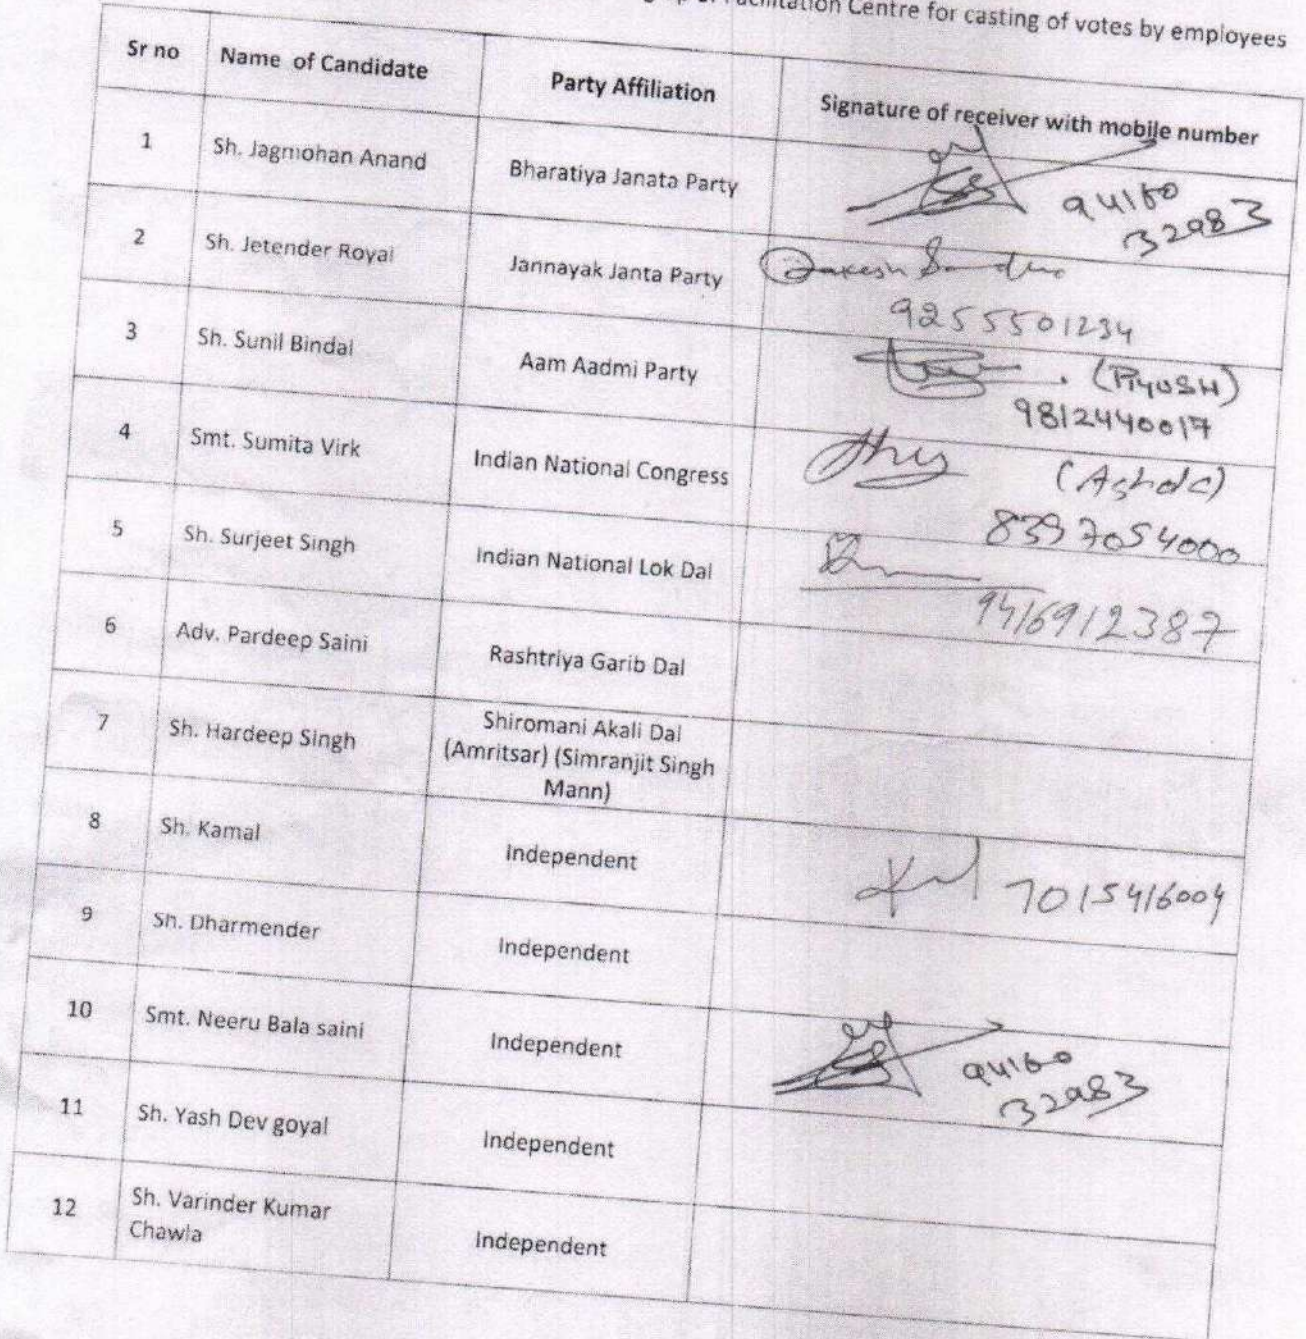 Facilitation Centre for casting of votes by employees
Sr no Name of Candidate Party Affiliation Signature of receiver with mobile number
1 Sh. Jagmohan Anand Bharatiya Janata Party 94160
32983
2 Sh. Jetender Royal Jannayak Janta Party
9255501234
3 Sh. Sunil Bindal Aam Aadmi Party (PiyuSH)
9812440017
4 Smt. Sumita Virk Indian National Congress (Ashok)
8397054000
5 Sh. Surjeet Singh Indian National Lok Dal
9416912387
6 Adv. Pardeep Saini Rashtriya Garib Dal
7 Sh. Hardeep Singh Shiromani Akali Dal
(Amritsar) (Simranjit Singh
Mann)
8 Sh. Kamal Independent 7015416004
9 Sh. Dharmender Independent
10 Smt. Neeru Bala saini Independent 94160
32983
11 Sh. Yash Dev goyal Independent
12 Sh. Varinder Kumar
Chawla Independent